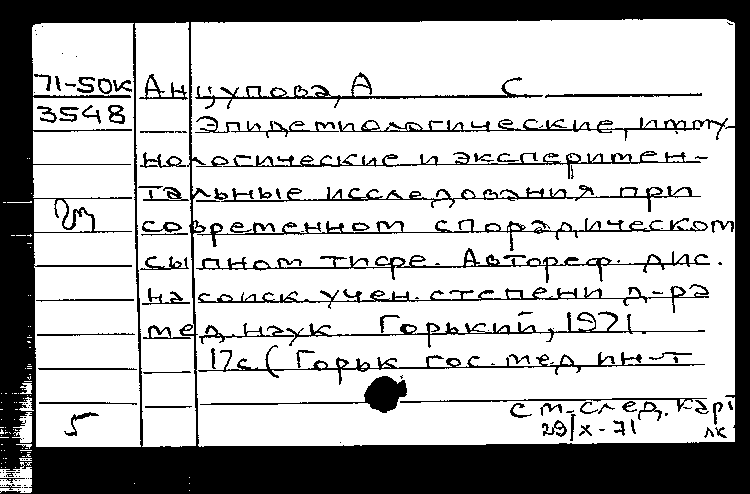 71-50к Анцупова, А С
3548 Эпидемиологические, имму-
нологические и эксперимен-
тальные исследования при
современном спорадическом
сыпном тифе. Автореф. дис.
на соиск. учен. степени д-ра
мед. наук Горький, 1971.
17с. (Горьк гос. мед. ин-т
5 см. след. карт
29/X-71 лк